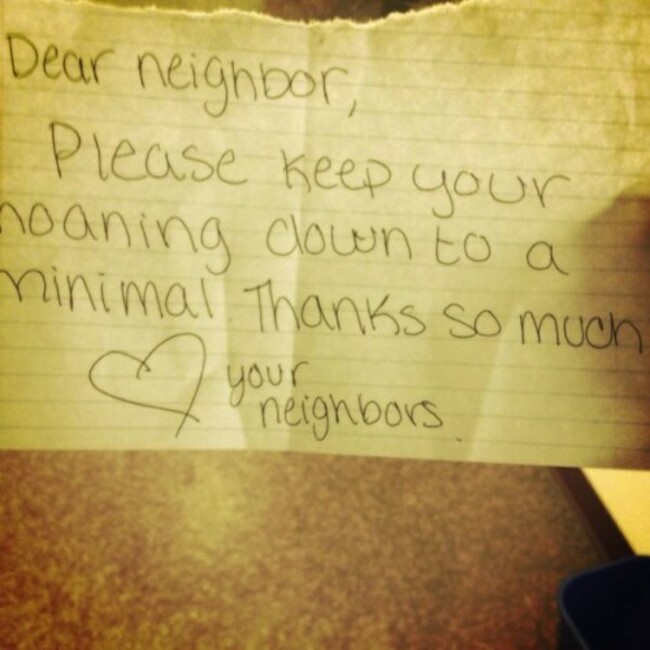 Dear neighbor,
Please keep your
moaning down to a
minimal. Thanks so much
your
neighbors.